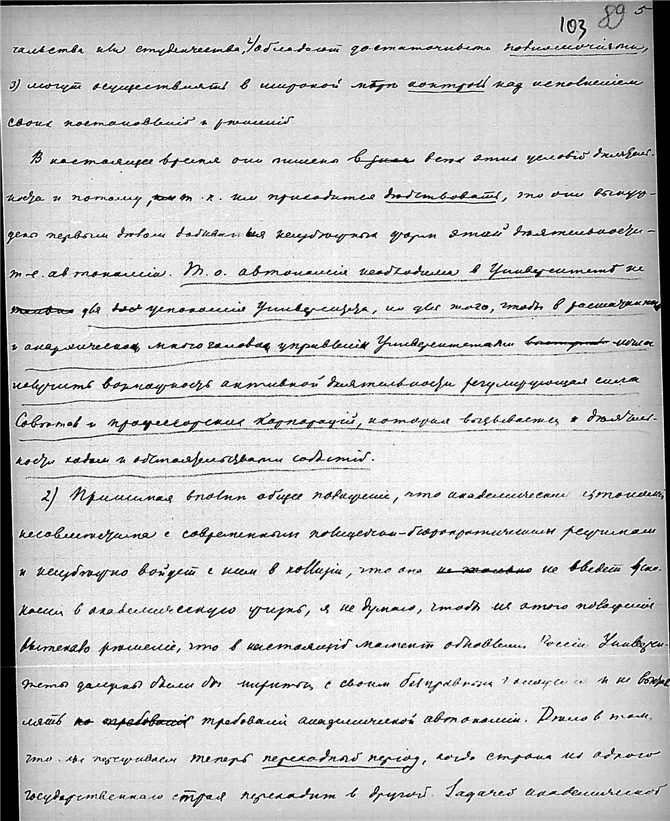 103 89 5
чальства или студенчества, 4) обладают достаточными полномочиями,
5) могут осуществлять в широкой мѣрѣ контроль над исполнением
своих постановленій и рѣшеній
В настоящее время они лишены всѣх этих условій дѣятель-
ности и потому, т. к. им приходится дѣйствовать, то они вынуж-
дены первым дѣлом добиваться неизбѣжных форм этой дѣятельности –
т.-е. автономіи. Т. о. автономія необходима в Университетѣ не
только для успокоенія Университета, но для того, чтобы в расшатанном
и анархическом многоголовом управленіи Университетами могла
получить возможность активной дѣятельности регулирующая сила
Совѣтов и профессорских корпорацій, которая вызывается к дѣятель-
ности ходом и обстоятельствами событій.
2) Принимая вполнѣ общее положеніе, что академическая автономія
несовмѣстима с современным полицейски-бюрократическим режимом
и неизбѣжно войдет с ним в коллизію, что она не только не введет успо-
коенія в академическую жизнь, я не думаю, чтобы из этого положенія
вытекало рѣшеніе, что в настоящій момент обновленія Россіи Универси-
теты должны были бы мириться с своим безправным положеніем и не выстав-
лять требованій академической автономіи. Дѣло в том,
что мы переживаем теперь переходный період, когда страна из одного
государственнаго строя переходит в другой. Задачей академической